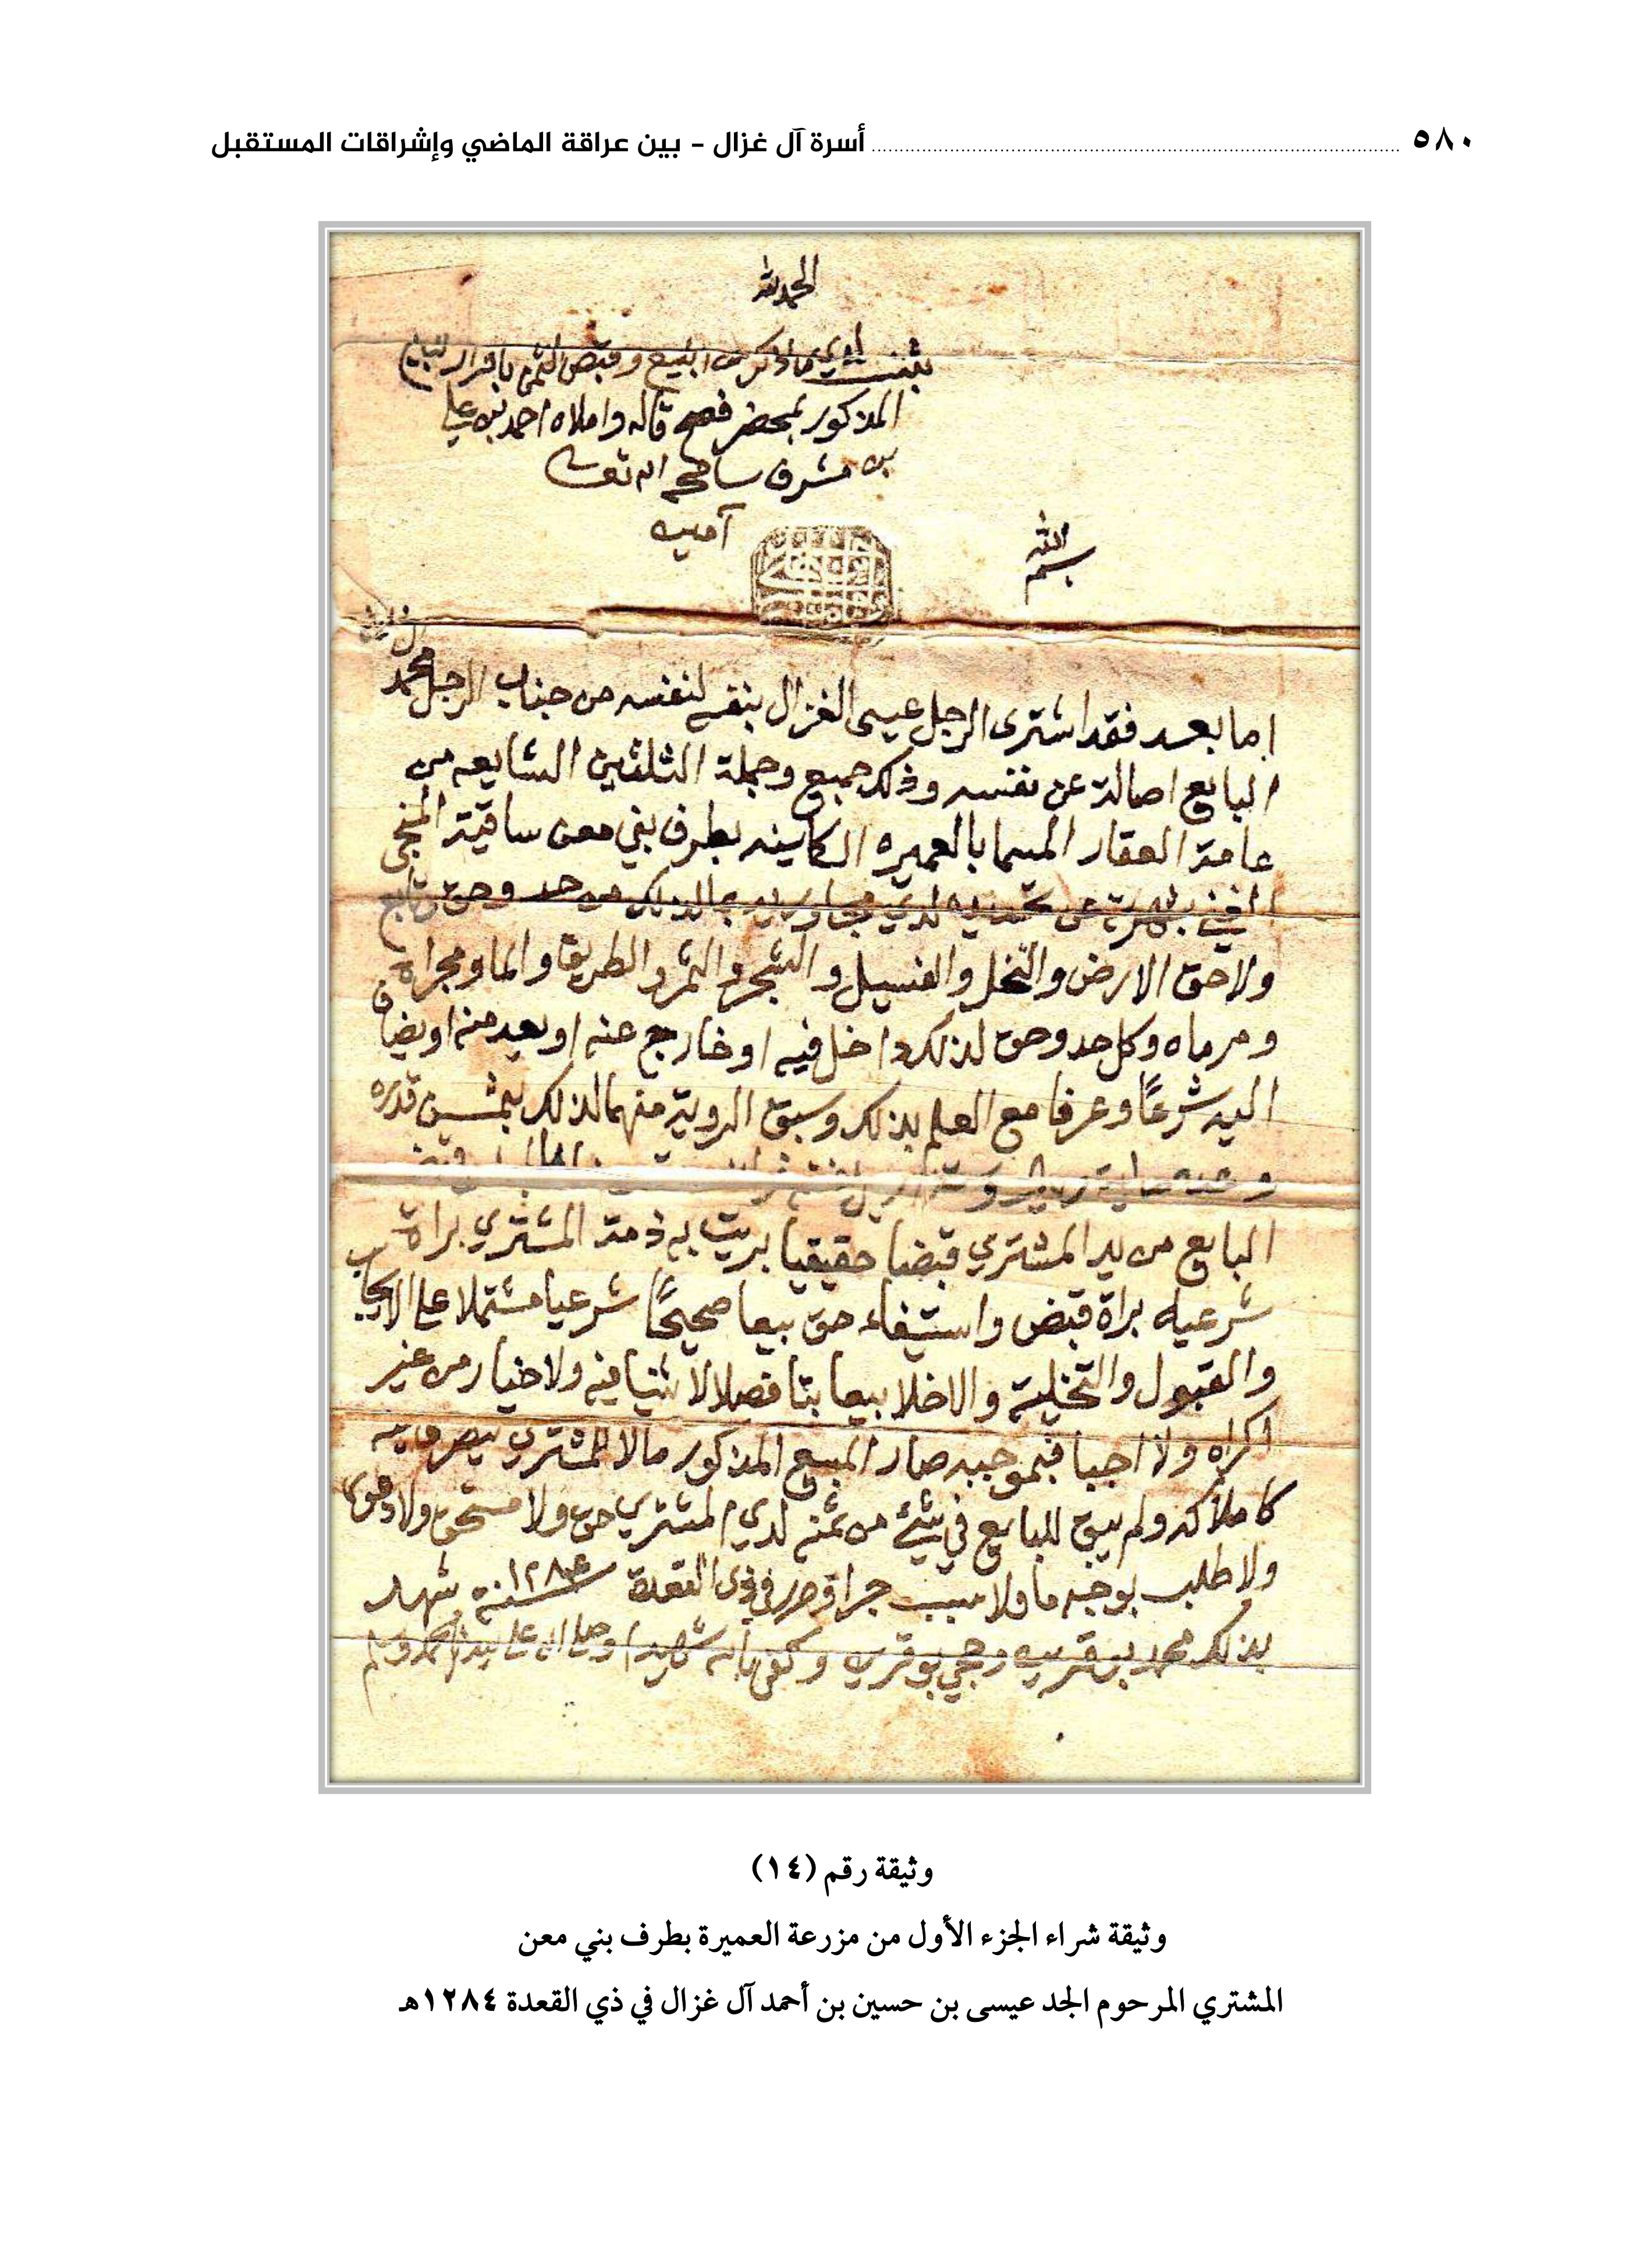 ٥٨٠ أسرة آل غزال - بين عراقة الماضي وإشراقات المستقبل
الحمد لله
ثبت لدي ما ذكر من البيع وقبض الثمن باقرار البايع
المذكور بمحضر فصح قاله واملاه احمد بن علي
بن مشرف سامحه الله تعالى
آمين
بسم الله
اما بعد فقد اشترى الرجل عيسى الغزال لنفسه من جناب الرجل محمد
البايع اصالة عن نفسه وذلك جميع وجملة الثلثين الشايعه من
عامة العقار المسما بالعميره الكاينه بطرف بني معن ساقية المنجي
الغني بشهرته عن تحديده لدي مجاوريه بما لذلك من حد وحق تابع
ولاحق الارض والنخل والفسيل والشجر والثمر والطريق والما ومجراه
ومرماه وكل حد وحق لذلك داخل فيه او خارج عنه او بعيد منه او يضاف
اليه شرعًا وعرفا مع العلم بذلك وسبق الروية منهما لذلك بثمن قدره
وعده ماية ريال
البايع من يد المشتري قبضا حقيقيا بريت به ذمة المشتري براة
شرعيه براة قبض واستيفاء حق بيعا صحيحًا شرعيا مشتملا على الايجاب
والقبول والتخلية والاخلا بيعا بتا فصلا لا ثنيا فيه ولا خيار من غير
اكراه ولا اجبا فبموجبه صار المبيع المذكور مالا للمشتري يتصرف فيه
كاملاكه ولم يبق للبايع في شيئ من ثمنه لدي المشتري حق ولا مستحق ولا دعوى
ولا طلب بوجه ما ولا سبب جرا وحرر في ذي القعدة سنة ١٢٨٤ شهد
بذلك محمد بن قرين وحجي بو قرين وكفى بالله شهيدا وصلى الله على سيدنا محمد وسلم
وثيقة رقم (١٤)
وثيقة شراء الجزء الأول من مزرعة العميرة بطرف بني معن
المشتري المرحوم الجد عيسى بن حسين بن أحمد آل غزال في ذي القعدة ١٢٨٤هـ